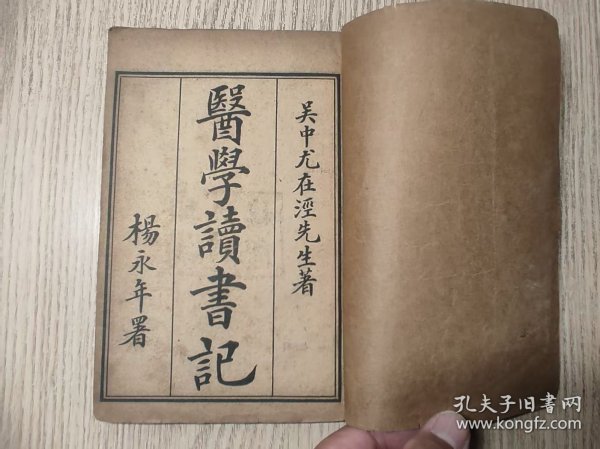 吴中尤在涇先生著
醫學讀書記
楊永年署
孔夫子旧書网
www.kongfz.com